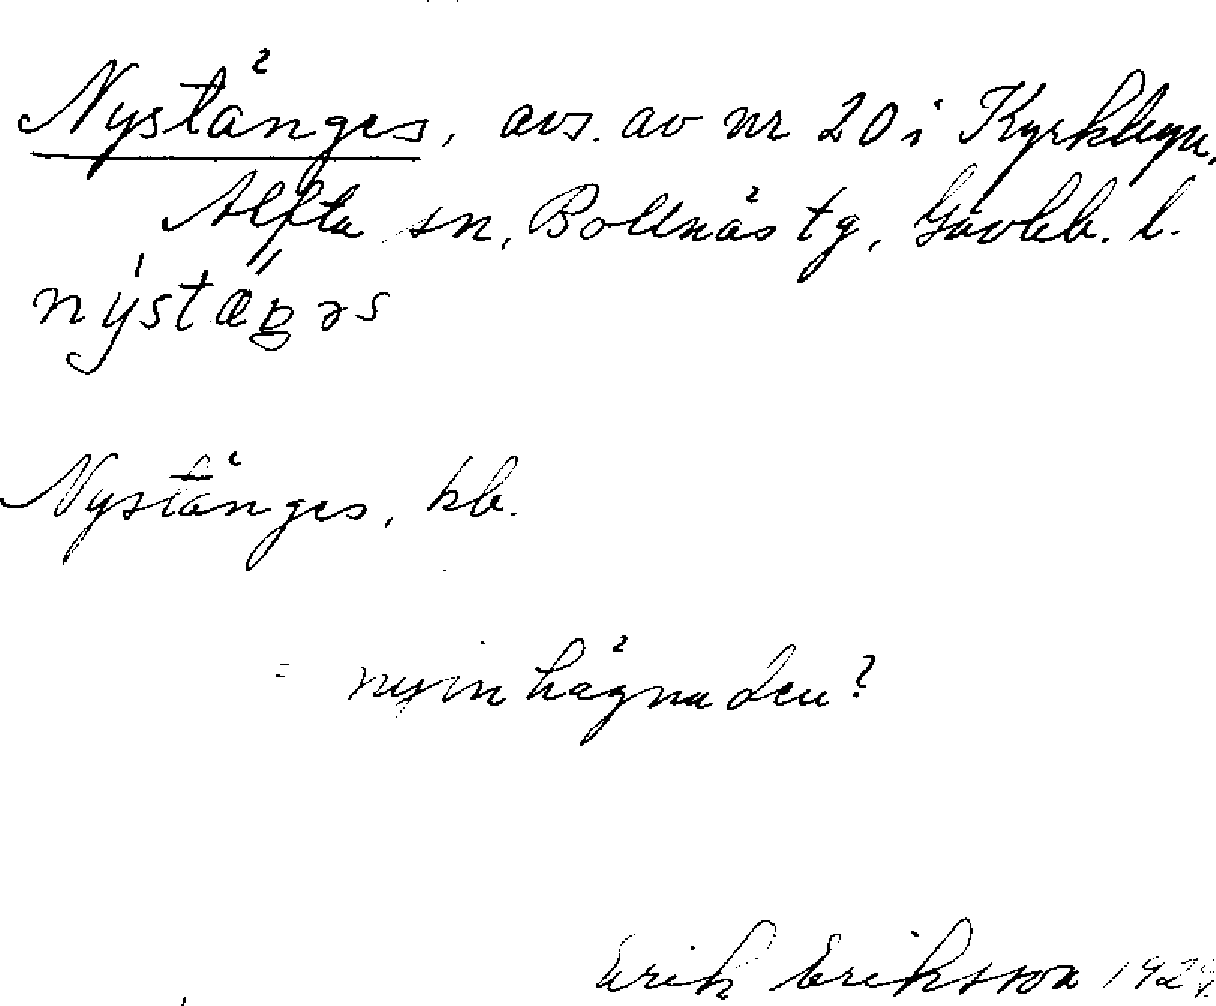 Nystänges, avs. av nr 20 i Kyrkbyn,
Alfta sn, Bollnäs tg, Gävleb. l.
nýstæŋəs
Nystänges, kb.
= nyinhägnaden?
Erik Eriksson